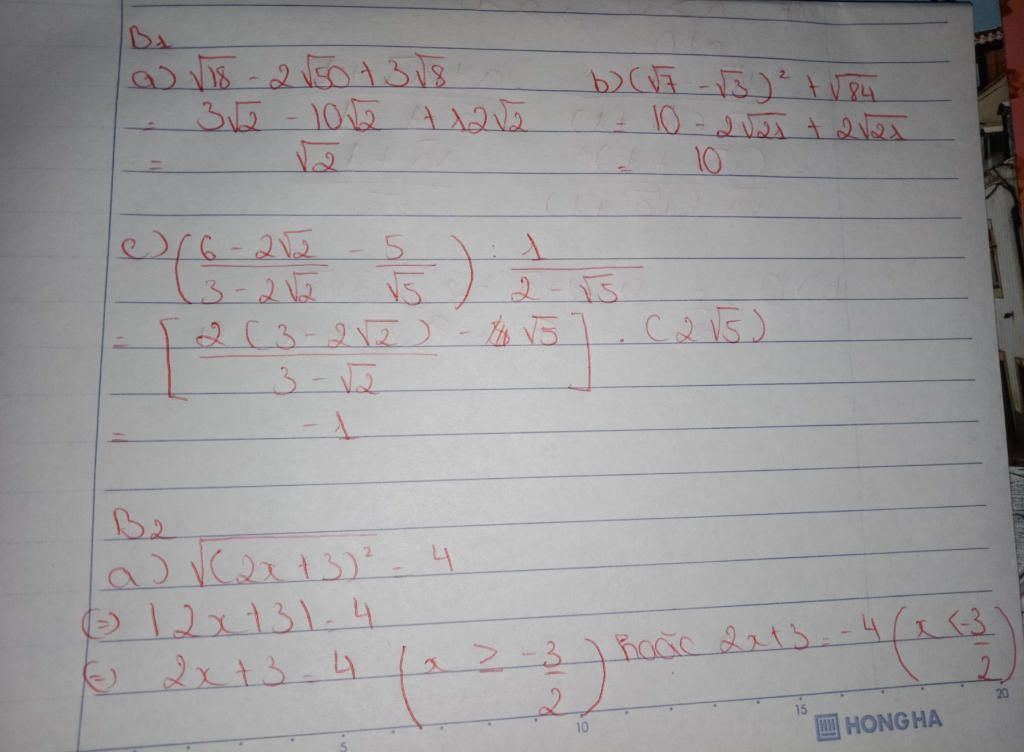 B1
a) √18 - 2√50 + 3√8
b) (√7 - √3)² + √84
= 3√2 - 10√2 + 12√2
= 10 - 2√21 + 2√21
= √2
= 10
c) ((6 - 2√2)/(3 - 2√2) - 5/√5) : 1/(2 - √5)
= [(2(3 - 2√2))/(3 - √2) - √5] . (2√5)
= -1
B2
a) √(2x+3)² = 4
(=) |2x+3| = 4
(=) 2x+3 = 4 (x ≥ -3/2) hoặc 2x+3 = -4 (x < -3/2)
5 10 15 20
HONG HA